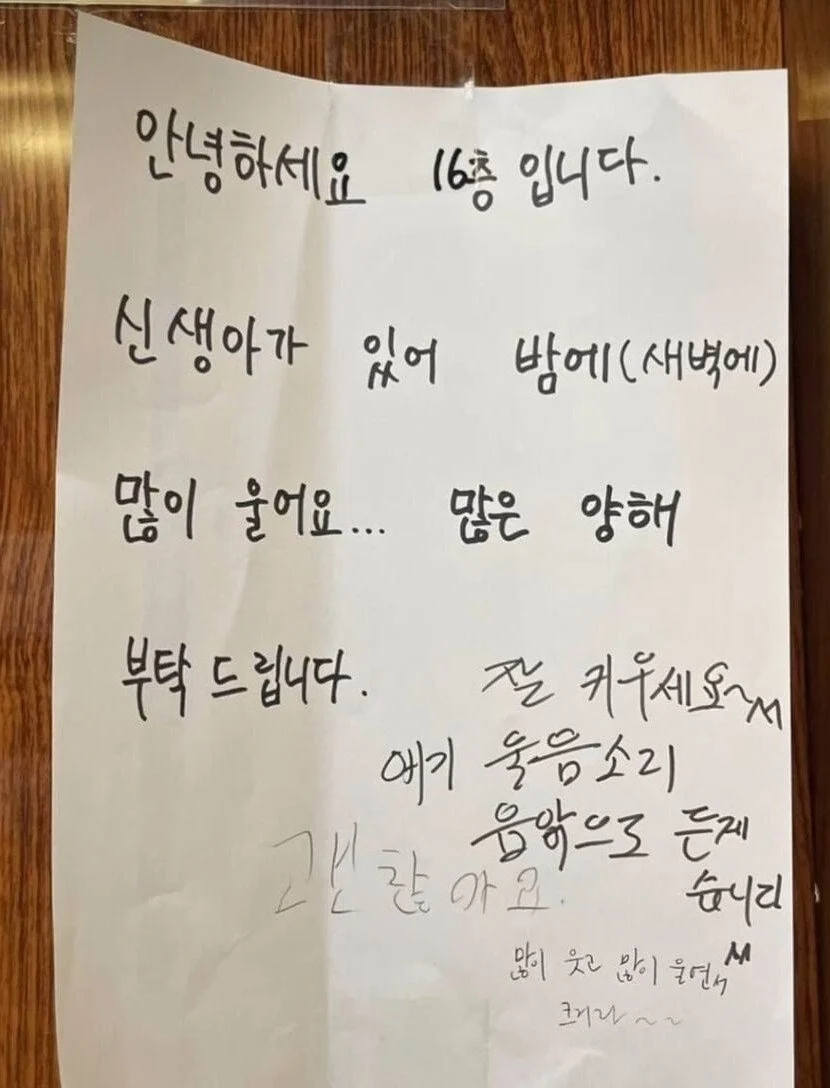 안녕하세요 16층 입니다.
신생아가 있어 밤에(새벽에)
많이 울어요... 많은 양해
부탁 드립니다.
잘 키우세요~
애기 울음소리
음악으로 듣제
습니다
괜찮아요.
많이 웃고 많이 울면서
크거라~~